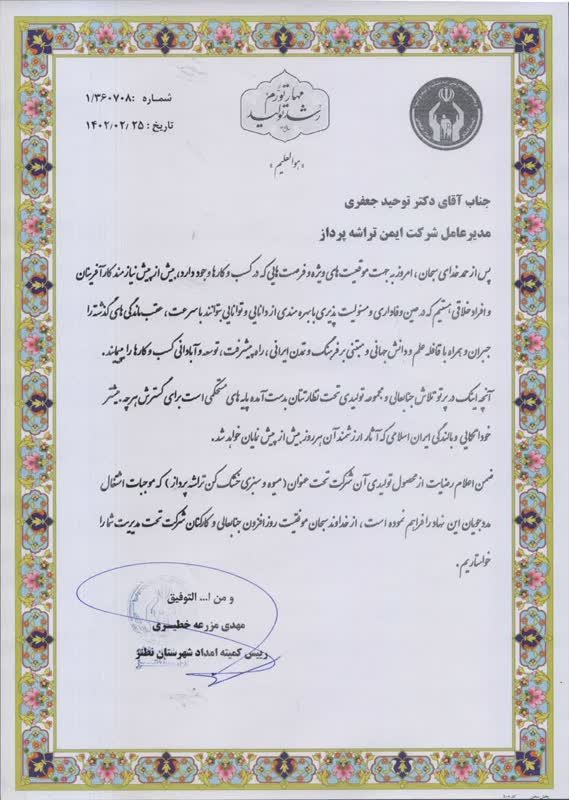 شماره :۱/۳۶۰۷۰۸
تاریخ : ۱۴۰۲/۰۲/۲۵
مهار تورم
رشد تولید
«هو العلیم»
جناب آقای دکتر توحید جعفری
مدیرعامل شرکت ایمن تراشه پرداز
پس از حمد خدای سبحان ، امروز به جهت موقعیت های ویژه و فرصت هایی که در کسب و کارها وجود دارد، بیش از پیش نیازمند کارآفرینان
و افراد خلاقی هستیم که در عین وفاداری و مسئولیت پذیری با بهره مندی از دانایی و توانایی بتوانند با سرعت ، عقب ماندگی های گذشته را
جبران و همراه با قافله علم و دانش جهانی و مبتنی بر فرهنگ و تمدن ایرانی ، راه پیشرفت، توسعه و آبادانی کسب و کارها را بپیمایند.
آنچه اینک در پرتو تلاش جنابعالی و مجموعه تولیدی تحت نظارتتان بدست آمده پایه های مستحکمی است برای گسترش هرچه بیشتر
خوداتکایی و بالندگی ایران اسلامی که آثار ارزشمند آن هر روز بیش از پیش نمایان خواهد شد.
ضمن اعلام رضایت از محصول تولیدی آن شرکت تحت عنوان (میوه و سبزی خشک کن تراشه پرداز) که موجبات اشتغال
مددجویان این نهاد را فراهم نموده است ، از خداوند سبحان موفقیت روزافزون جنابعالی و کارکنان شرکت تحت مدیریت شما را
خواستاریم.
و من ا... التوفیق
مهدی مزرعه خطیری
رییس کمیته امداد شهرستان نطنز